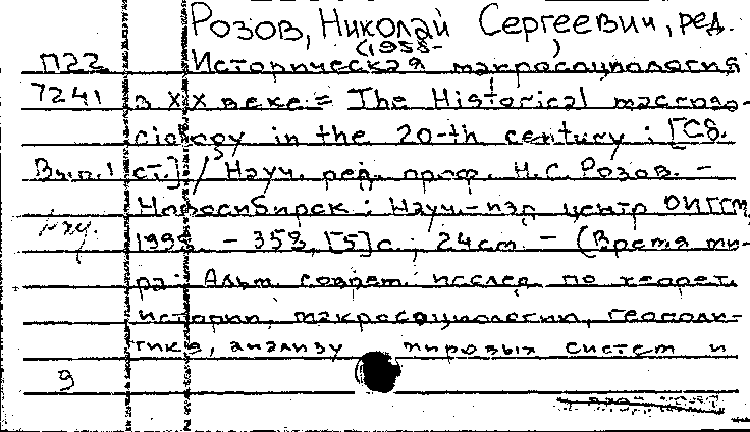 Розов, Николай Сергеевич, ред.
(1958- )
П22 Историческая макросоциология
7241 в XX веке = The Historical macroso-
ciology in the 20-th century : [Сб.
Вып. 1 ст.] / Науч. ред. проф. Н.С. Розов. -
Новосибирск : Науч.-изд. центр ОИГГМ,
- 358, [5] с. ; 24 см. - (Время ми-
ра : Альм. соврем. исслед. по теорет.
истории, макросоциологии, геополи-
тике, анализу мировых систем и
9